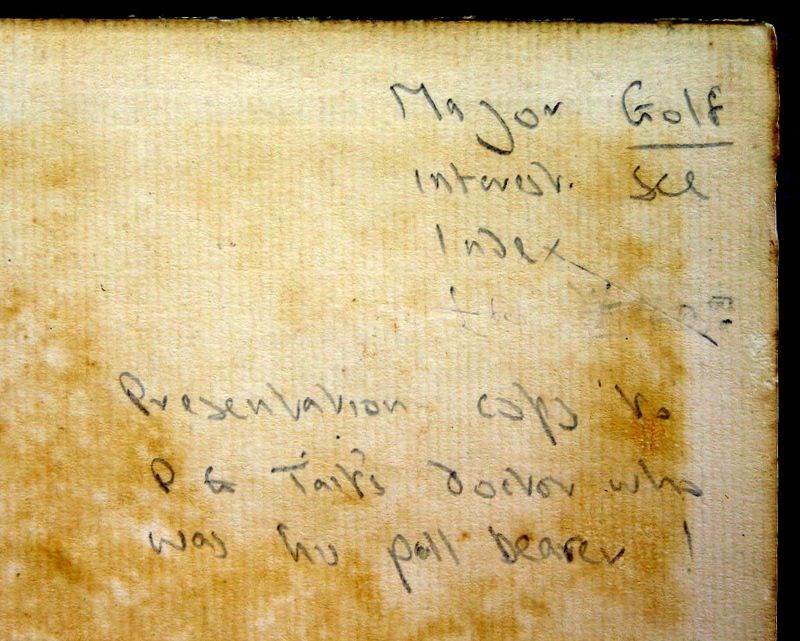 Major Golf
interest. See
Index
Presentation copy to
P G Tait's doctor who
was his pall bearer !